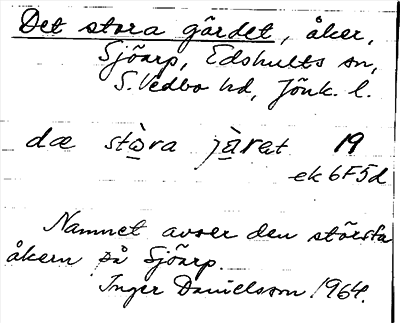 Det stora gärdet, åker,
Sjöarp, Edshults sn,
S. Vedbo hd, Jönk. l.
dæ stòra jà̱rat 19
ek 6F5d
Namnet avser den största
åkern på Sjöarp.
Inger Danielsson 1964.